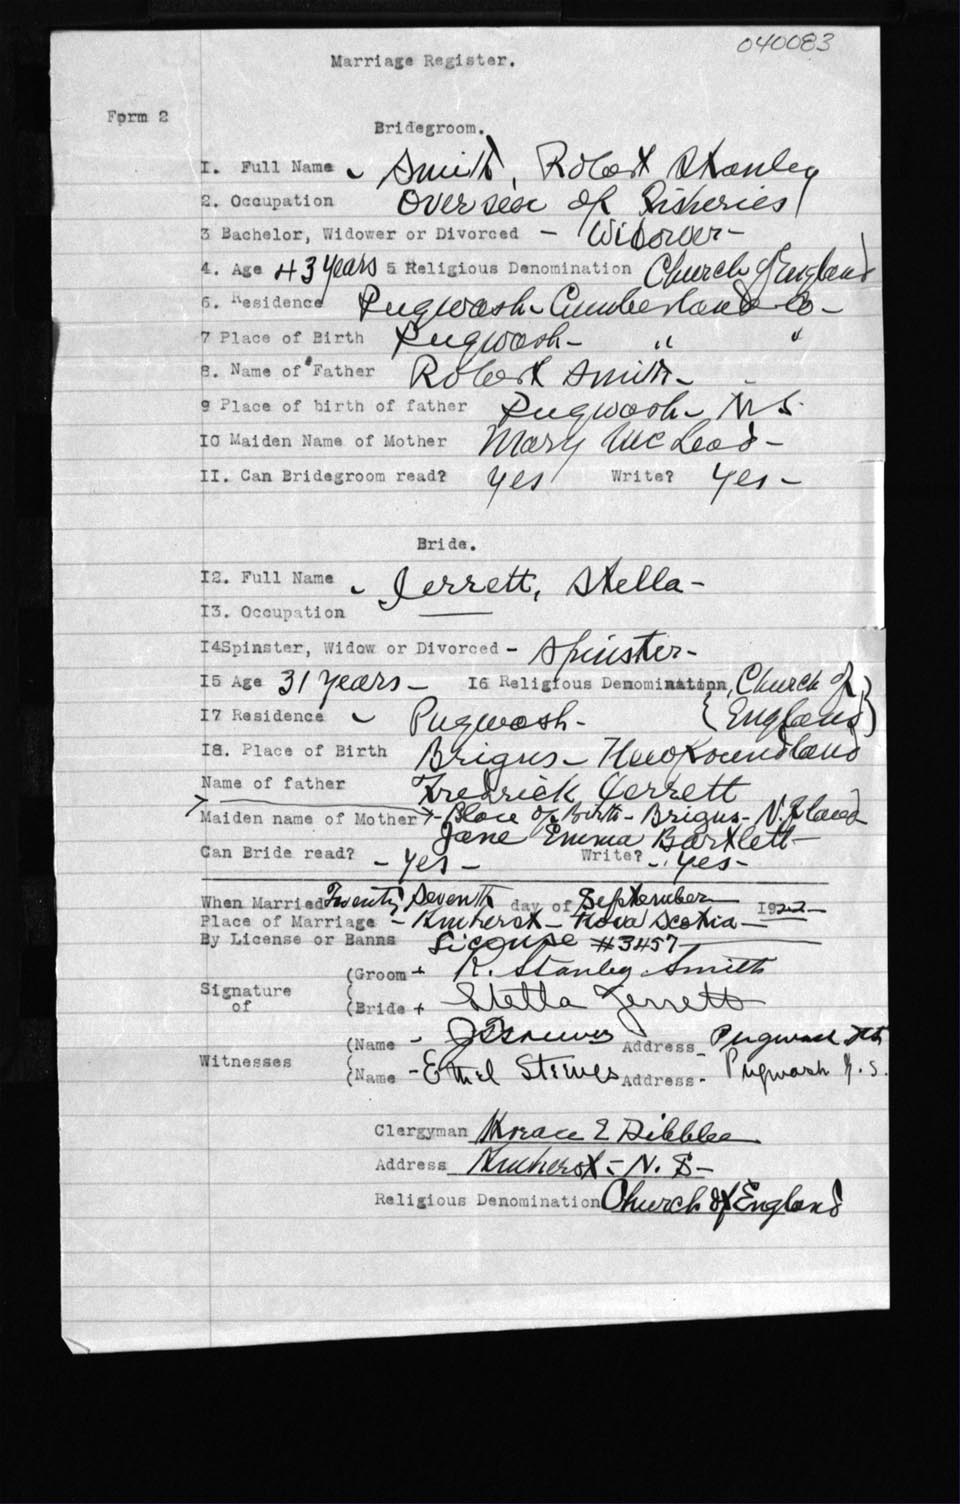 040083
Marriage Register.
Form 2
Bridegroom.
1. Full Name Smith, Robert Stanley
2. Occupation Overseer of Fisheries
3 Bachelor, Widower or Divorced - Widower -
4. Age 43 years 5 Religious Denomination Church of England
6. Residence Pugwash - Cumberland Co -
7 Place of Birth Pugwash - " "
8. Name of Father Robert Smith -
9 Place of birth of father Pugwash - N S.
10 Maiden Name of Mother Mary McLeod -
11. Can Bridegroom read? yes Write? yes -
Bride.
12. Full Name Jerrett, Stella -
13. Occupation
14Spinster, Widow or Divorced - Spinster -
15 Age 31 years - 16 Religious Denomination, Church of
17 Residence Pugwash - England
18. Place of Birth Brigus - Newfoundland
Name of father Fredrick Jerrett
- Place of Birth - Brigus - N.F.land
Maiden name of Mother Jane Emma Bartlett
Can Bride read? - yes - Write? - yes -
When Married Twenty Seventh day of September 1922
Place of Marriage - Amherst - Nova Scotia -
By License or Banns License #3457
(Groom + R. Stanley Smith
Signature
of
(Bride + Stella Jerrett
(Name - Address - Pugwash
Witnesses
(Name - Ethel Address - Pugwash N.S.
Clergyman Horace E Dibblee
Address Amherst - N. S -
Religious Denomination Church of England